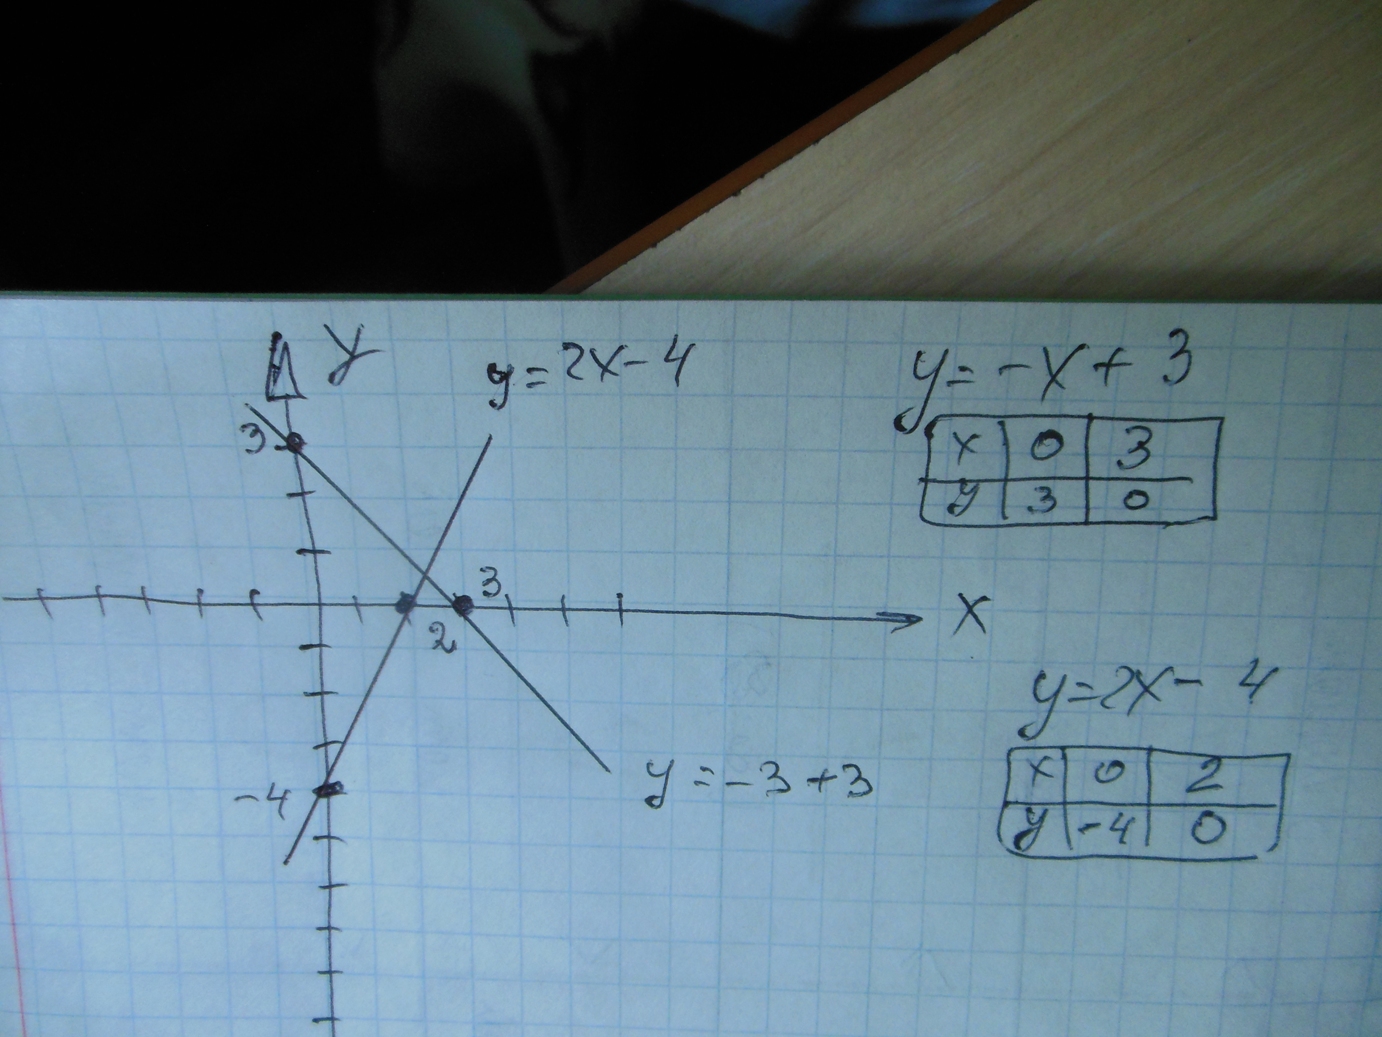 y
y = 2x - 4
3
3
2
x
-4
y = -3 + 3
y = -x + 3
x 0 3
y 3 0
y = 2x - 4
x 0 2
y -4 0